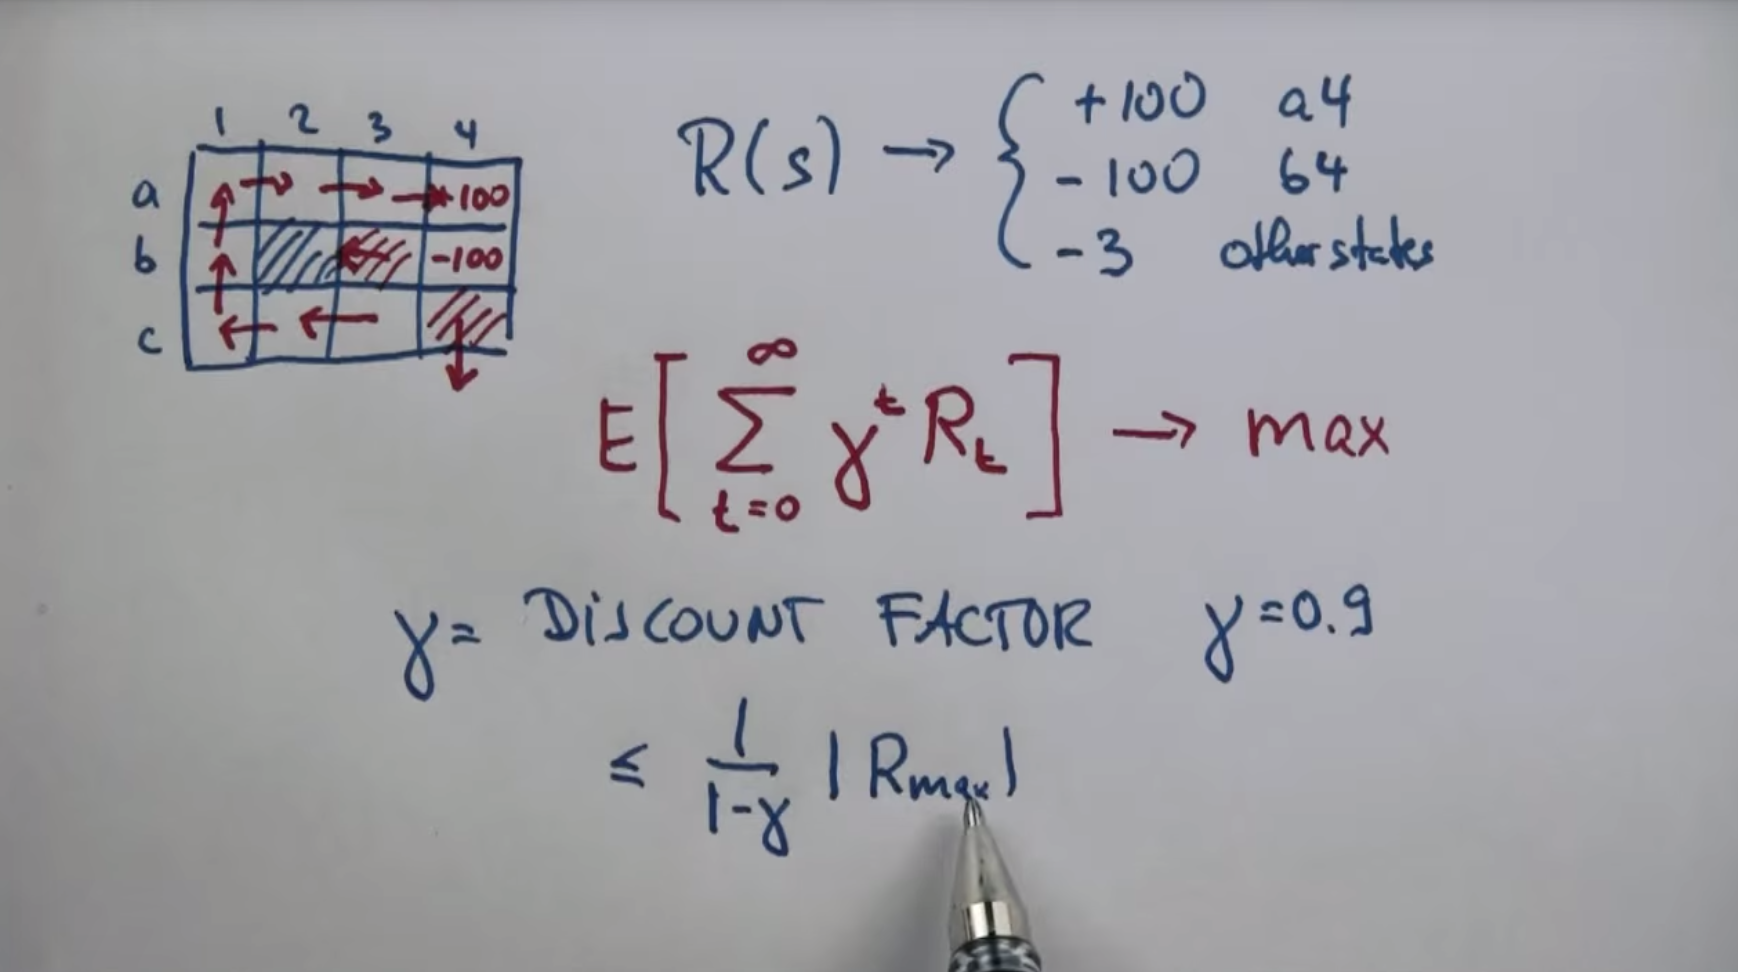 1 2 3 4
a +100
b -100
c
R(s) → { +100 a4
-100 b4
-3 other states
E[ ∞ Σ t=0 γ^t R_t ] → max
γ = DISCOUNT FACTOR γ=0.9
≤ 1/(1-γ) |Rmax|